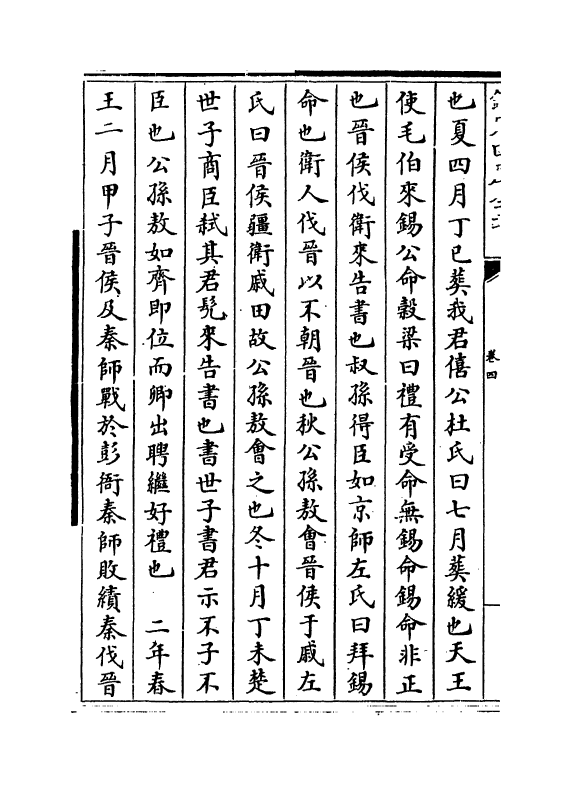 卷四
也夏四月丁巳葬我君僖公杜氏曰七月葬緩也天王
使毛伯來錫公命榖梁曰禮有受命無錫命錫命非正
也晉侯伐衛來告書也叔孫得臣如京師左氏曰拜錫
命也衛人伐晉以不朝晉也秋公孫敖會晉侯于戚左
氏曰晉侯疆衛戚田故公孫敖會之也冬十月丁未楚
世子商臣弑其君髠來告書也書世子書君示不子不
臣也公孫敖如齊即位而卿出聘繼好禮也　二年春
王二月甲子晉侯及秦師戰於彭衙秦師敗績秦伐晉